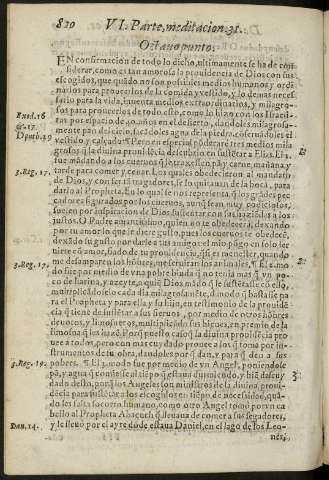 820 VI. Parte, meditacion. 31.
Octauo punto.
EN confirmacion de todo lo dicho, ultimamente se ha de con
siderar, como es tan amorosa la prouidencia de Dios con sus
escogidos, que quãdo no son possibles medios humanos y ordi
narios para proueerlos de la comida y vestido, y lo demas neces
sario para la vida, inuenta medios extraordinarios, y milagro
sos para proueerlos de todo esto, como lo hizo con los Israeli
Exod. 16 tas por espacio de 40. años en el desierto, dandoles milagrosa
& 17. mente pan del cielo, sacãdoles agua de la piedra, cõseruãdoles el
Deut. 29 vestido y calçado. Pero en especial põderarè tres medios mila
grosos q̃ la diuina prouidẽcia descubrio en sustẽtar a Elias. El 1.
fue mãdando a los cueruos q̃ le traxessen pã y carne, mañana, y
3. Reg. 17. tarde para comer y cenar. Los quales obedecieron al mandato
de Dios, y con ser tã tragadores, se lo quitauã de la boca, para
darlo al Propheta. En lo qual se nos representa q̃ los grãdes pec
cadores figurados por los cueruos, aunq̃ sean muy codiciosos,
suelen por inspiracion de Dios sustẽtar con sus haziẽdas a los
justos. O Padre amantissimo, quien no te obedecerà, dexando
por tu amor lo que le diere gusto, pues los cueruos te obedecẽ,
dexãdo su gusto por darle a tus amigos?
te quiero amar, fiado de tu prouidencia, q̃ si es menester, quando
3. Reg. 17. me desampare los hõbres, me seruiran los animales. ¶ El 2. mo
do fue por medio de vna pobre biuda q̃ no tenia mas q̃ vn po
co de harina, y azeyte, a quiẽ Dios mãdò q̃ le sustẽtasse cõ ello,
multiplicãdoselo cada dia milagrosamẽte, de modo q̃ bastasse pa
ra el Propheta y para ella y su hijo, en testimonio de la prouidẽ
cia q̃ tiene de sustẽtar a sus sieruos, por medio de otros hõbres
deuotos, y limosneros, multiplicando sus bienes, en premio de la
limosna q̃ los hazẽ. Porq̃ puesto caso q̃ la diuina prouidẽcia pro
uee a todos, pero con mas cuydado prouee a los q̃ toma por in
strumentos de tu obra, dandoles por q̃ dan, y para q̃ den a sus
3. Reg. 19. pobres. ¶ El 3. modo fue por medio de vn Angel, poniendole
pã, y agua q̃ comiesse al tiẽpo q̃ estaua durmiendo, y biẽ descuy
dado desto, porq̃ los Angeles son ministros de la diuina proui
dẽcia para sustẽtar a los escogidos en tiẽpo de necessidad, quã
do les falta socorro humano, como otro Angel tomò por vn ca
bello al Propheta Abacuch q̃ lleuaua de comer a sus segadores,
Dan. 14. y le lleuò por el ayre dõde estaua Daniel, en el lago de los Leo-
nes,